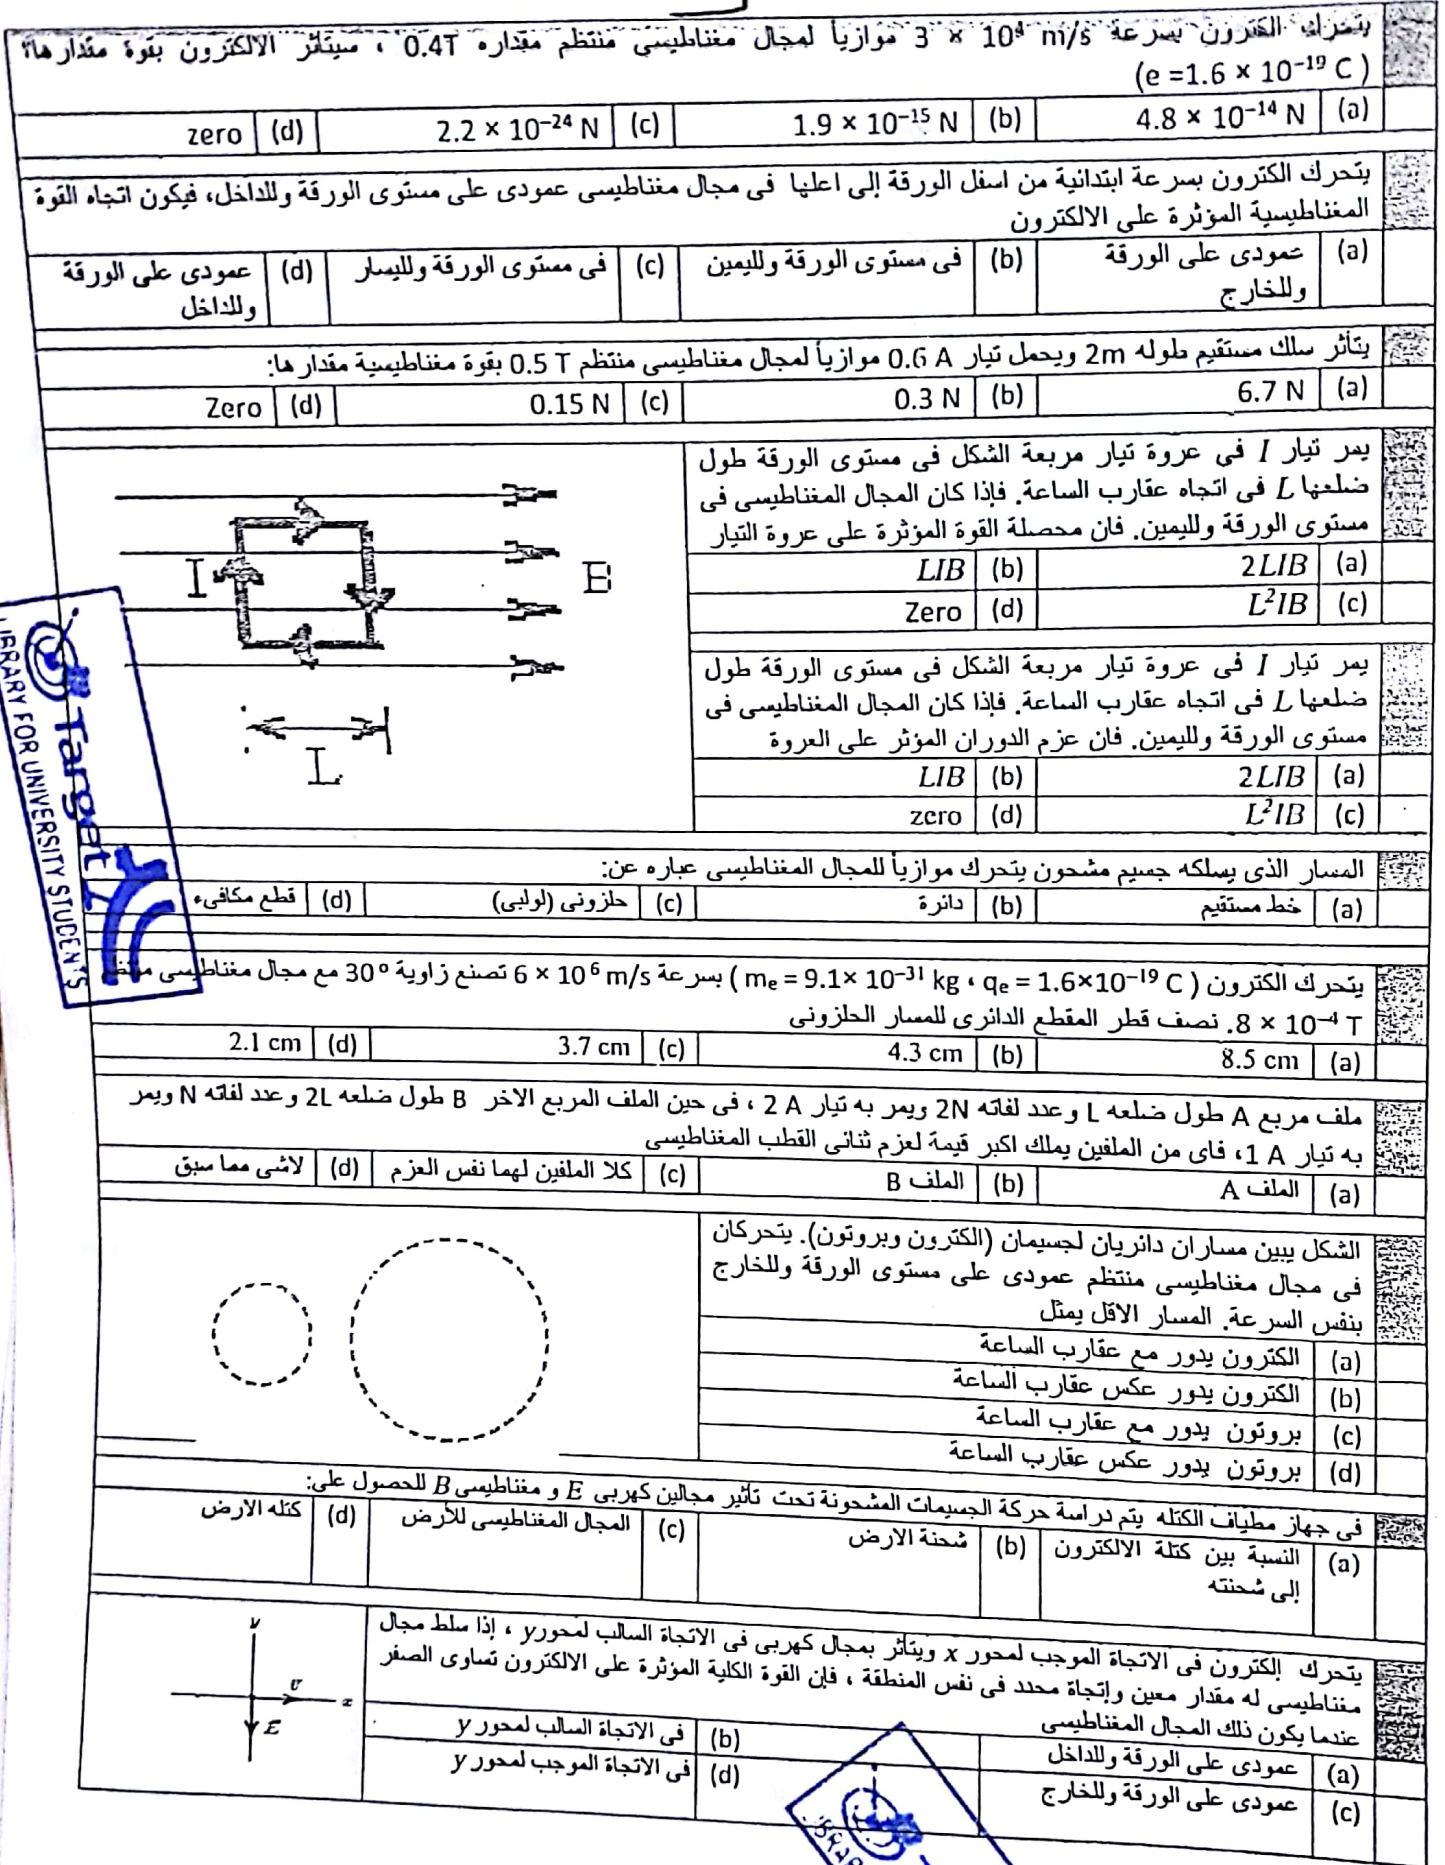 يتحرك الكترون بسرعة 3 × 10⁴ m/s موازياً لمجال مغناطيسى منتظم مقداره 0.4T ، سيتأثر الالكترون بقوة مقدارها؟
(e =1.6 × 10⁻¹⁹ C )
(a) 4.8 × 10⁻¹⁴ N (b) 1.9 × 10⁻¹⁵ N (c) 2.2 × 10⁻²⁴ N (d) zero
يتحرك الكترون بسرعة ابتدائية من اسفل الورقة إلى اعلها فى مجال مغناطيسى عمودى على مستوى الورقة وللداخل، فيكون اتجاه القوة
المغناطيسية المؤثرة على الالكترون
(a) عمودى على الورقة (b) فى مستوى الورقة ولليمين (c) فى مستوى الورقة ولليسار (d) عمودى على الورقة
وللخارج وللداخل
يتأثر سلك مستقيم طوله 2m ويحمل تيار 0.6 A موازياً لمجال مغناطيسى منتظم 0.5 T بقوة مغناطيسية مقدارها:
(a) 6.7 N (b) 0.3 N (c) 0.15 N (d) Zero
يمر تيار I فى عروة تيار مربعة الشكل فى مستوى الورقة طول
ضلعها L فى اتجاه عقارب الساعة. فإذا كان المجال المغناطيسى فى
مستوى الورقة ولليمين. فان محصلة القوة المؤثرة على عروة التيار
(a) 2LIB (b) LIB
(c) L²IB (d) Zero
I
B
L
يمر تيار I فى عروة تيار مربعة الشكل فى مستوى الورقة طول
ضلعها L فى اتجاه عقارب الساعة. فإذا كان المجال المغناطيسى فى
مستوى الورقة ولليمين. فان عزم الدوران المؤثر على العروة
(a) 2LIB (b) LIB
(c) L²IB (d) zero
المسار الذى يسلكه جسيم مشحون يتحرك موازياً للمجال المغناطيسى عباره عن:
(a) خط مستقيم (b) دائرة (c) حلزونى (لولبى) (d) قطع مكافىء
يتحرك الكترون ( mₑ = 9.1× 10⁻³¹ kg ، qₑ = 1.6×10⁻¹⁹ C ) بسرعة 6 × 10⁶ m/s تصنع زاوية 30° مع مجال مغناطيسى منتظم
8 × 10⁻⁴ T. نصف قطر المقطع الدائرى للمسار الحلزونى
(a) 8.5 cm (b) 4.3 cm (c) 3.7 cm (d) 2.1 cm
ملف مربع A طول ضلعه L وعدد لفاته 2N ويمر به تيار 2 A ، فى حين الملف المربع الاخر B طول ضلعه 2L وعدد لفاته N ويمر
به تيار 1 A، فاى من الملفين يملك اكبر قيمة لعزم ثنائى القطب المغناطيسى
(a) الملف A (b) الملف B (c) كلا الملفين لهما نفس العزم (d) لاشى مما سبق
الشكل يبين مساران دائريان لجسيمان (الكترون وبروتون). يتحركان
فى مجال مغناطيسى منتظم عمودى على مستوى الورقة وللخارج
بنفس السرعة. المسار الاقل يمثل
(a) الكترون يدور مع عقارب الساعة
(b) الكترون يدور عكس عقارب الساعة
(c) بروتون يدور مع عقارب الساعة
(d) بروتون يدور عكس عقارب الساعة
فى جهاز مطياف الكتله يتم دراسة حركة الجسيمات المشحونة تحت تأثير مجالين كهربى E و مغناطيسى B للحصول على:
(a) النسبة بين كتلة الالكترون (b) شحنة الارض (c) المجال المغناطيسى للأرض (d) كتله الارض
إلى شحنته
يتحرك إلكترون فى الاتجاة الموجب لمحور x ويتأثر بمجال كهربى فى الاتجاة السالب لمحور y ، إذا سلط مجال
مغناطيسى له مقدار معين وإتجاة محدد فى نفس المنطقة ، فإن القوة الكلية المؤثرة على الالكترون تساوى الصفر
عندما يكون ذلك المجال المغناطيسى
(a) عمودى على الورقة وللداخل (b) فى الاتجاة السالب لمحور y
(c) عمودى على الورقة وللخارج (d) فى الاتجاة الموجب لمحور y
y
v
x
E
Target
LIBRARY FOR UNIVERSITY STUDENTS